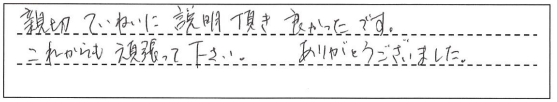 親切 ていねいに 説明 頂き 良かった です。
これからも 頑張って 下さい。 ありがとうございました。